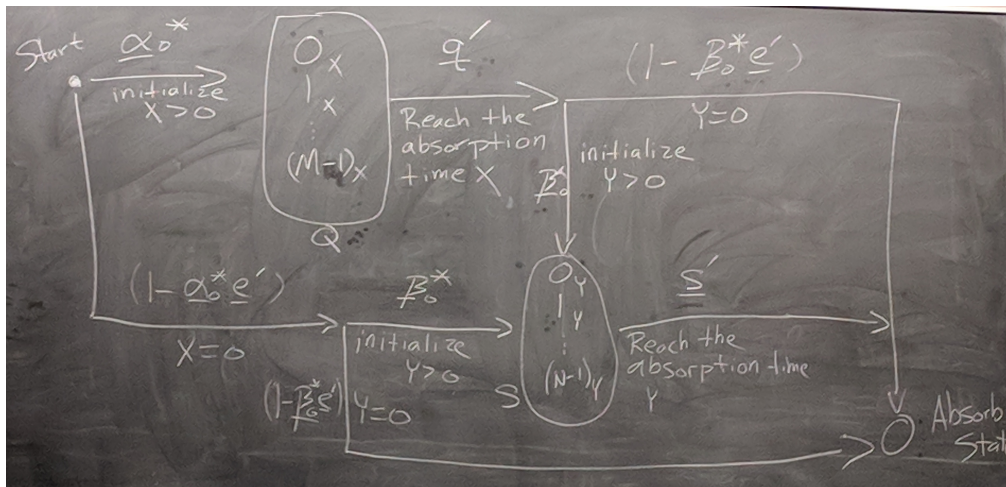 Start
α₀*
initialize
X>0
0ₓ
1ₓ
(M-1)ₓ
Q
q′
Reach the
absorption
time X
(1-β₀*e′)
Y=0
initialize
Y>0
β₀*
(1-α₀*e′)
X=0
β₀*
initialize
Y>0
(1-β₀*e′)
Y=0
0Y
1Y
(N-1)Y
S
s′
Reach the
absorption time
Y
0
Absorb
Stat